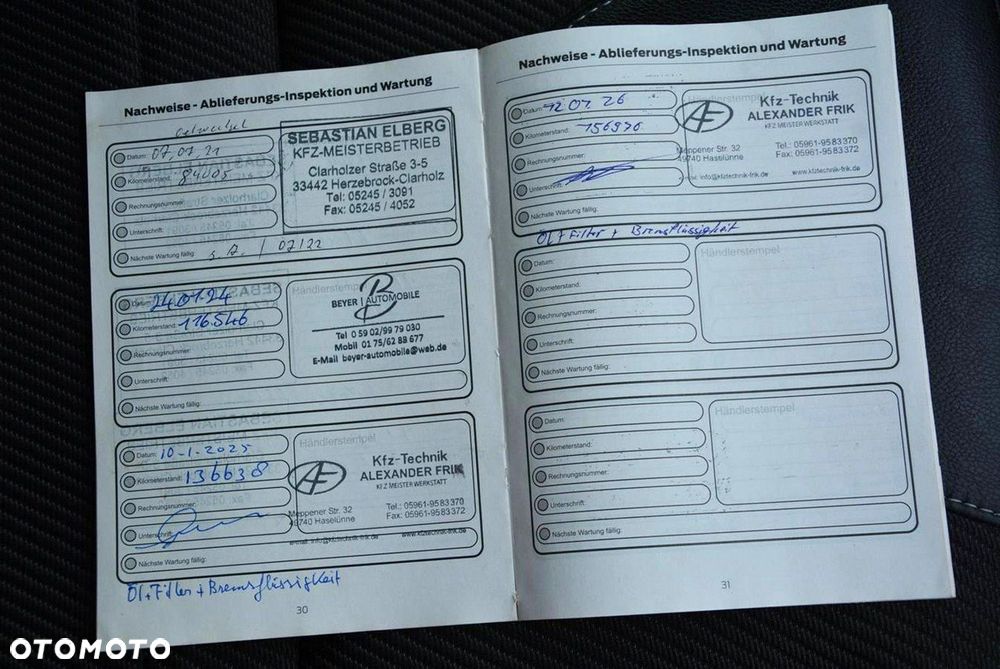 Nachweise - Ablieferungs-Inspektion und Wartung
Oelwechsel
Datum: 07.01.21
Kilometerstand: 84005
Rechnungsnummer:
Unterschrift:
Nächste Wartung fällig: s.A. / 07/22
SEBASTIAN ELBERG
KFZ-MEISTERBETRIEB
Clarholzer Straße 3-5
33442 Herzebrock-Clarholz
Tel: 05245 / 3091
Fax: 05245 / 4052
Datum: 24.01.24
Kilometerstand: 116.546
Rechnungsnummer:
Unterschrift:
Nächste Wartung fällig:
Händlerstempel
BEYER | AUTOMOBILE
B
Tel 0 59 02/99 79 030
Mobil 01 75/62 88 677
E-Mail beyer-automobile@web.de
Datum: 10-1.2025
Kilometerstand: 136638
Rechnungsnummer:
Unterschrift:
Nächste Wartung fällig:
Händlerstempel
AF
Kfz-Technik
ALEXANDER FRIK
KFZ MEISTERWERKSTATT
Meppener Str. 32
49740 Haselünne
Tel.: 05961-9583370
Fax: 05961-9583372
e-mail: info@kfztechnik-frik.de
www.kfztechnik-frik.de
Öl + Filter + Bremsflüssigkeit
30
Nachweise - Ablieferungs-Inspektion und Wartung
Datum: 12 01 26
Kilometerstand: 156970
Rechnungsnummer:
Unterschrift:
Nächste Wartung fällig:
Händlerstempel
AF
Kfz-Technik
ALEXANDER FRIK
KFZ MEISTERWERKSTATT
Meppener Str. 32
49740 Haselünne
Tel.: 05961-9583370
Fax: 05961-9583372
e-mail: info@kfztechnik-frik.de
www.kfztechnik-frik.de
Öl + Filter + Bremsflüssigkeit
Datum:
Kilometerstand:
Rechnungsnummer:
Unterschrift:
Nächste Wartung fällig:
Händlerstempel
Datum:
Kilometerstand:
Rechnungsnummer:
Unterschrift:
Nächste Wartung fällig:
Händlerstempel
31
OTOMOTO